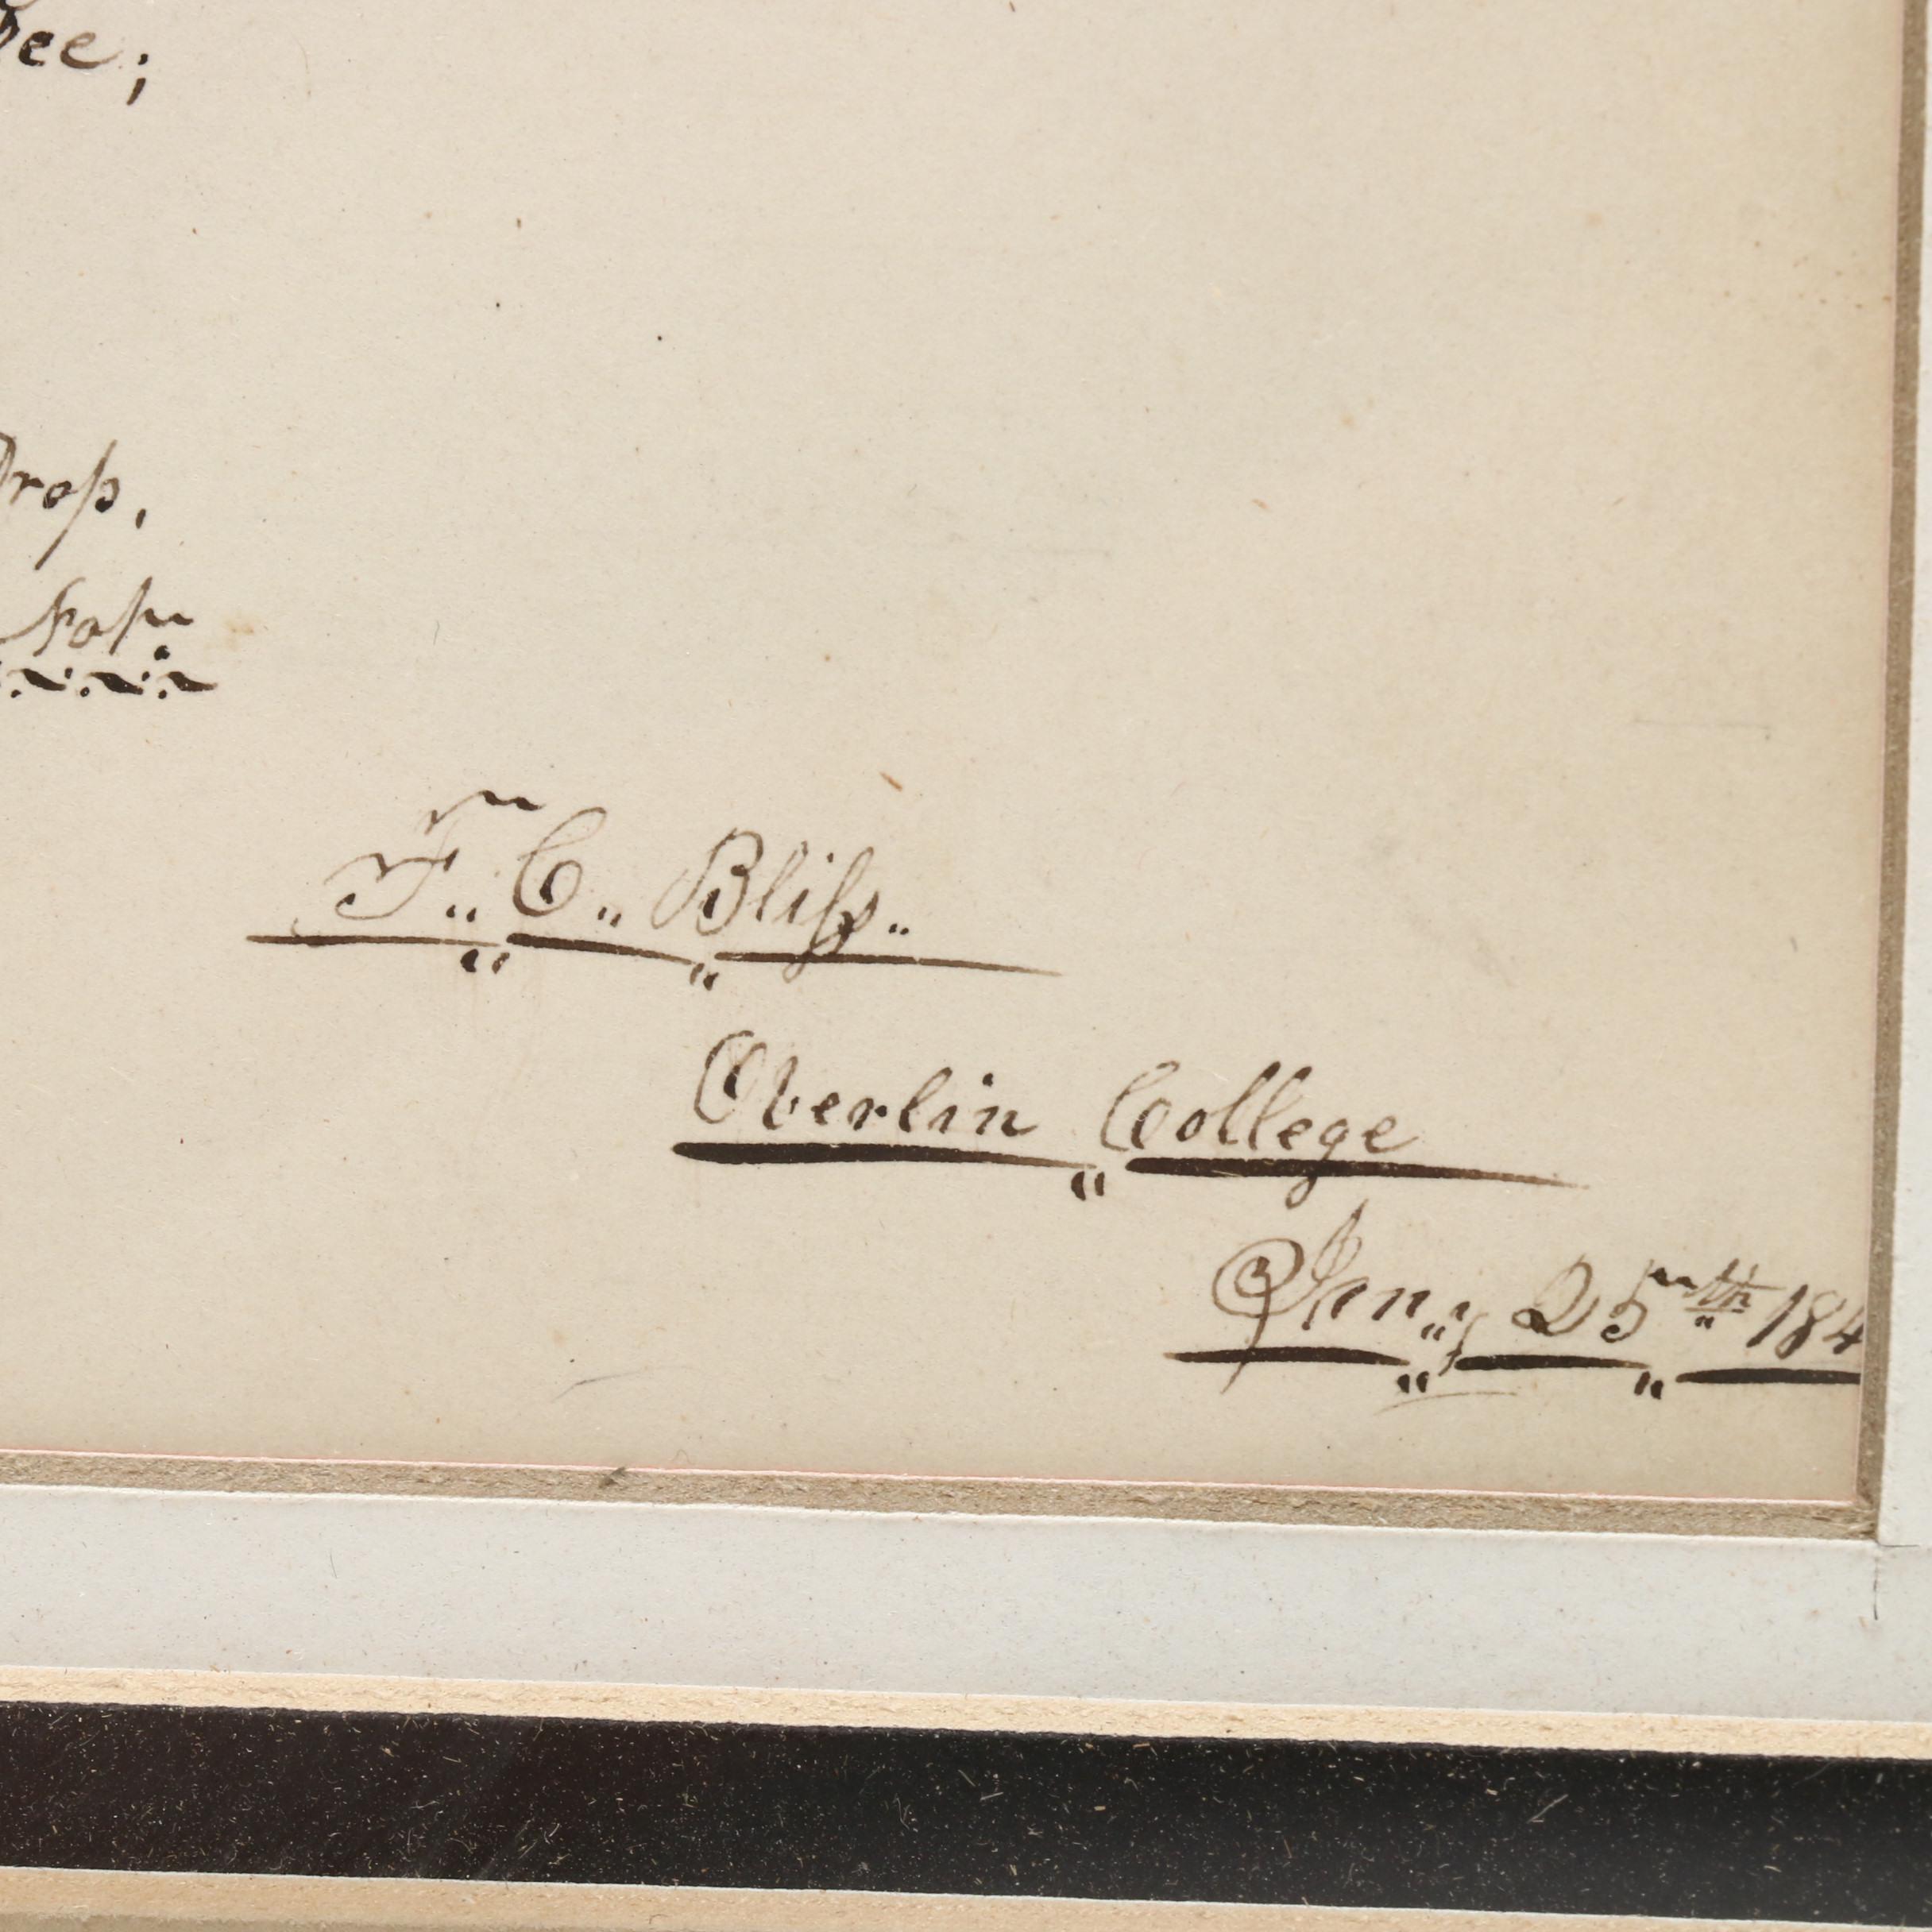 ee;
Drop,
F.. C.. Bliſs..
Oberlin College
Jany 25th 184